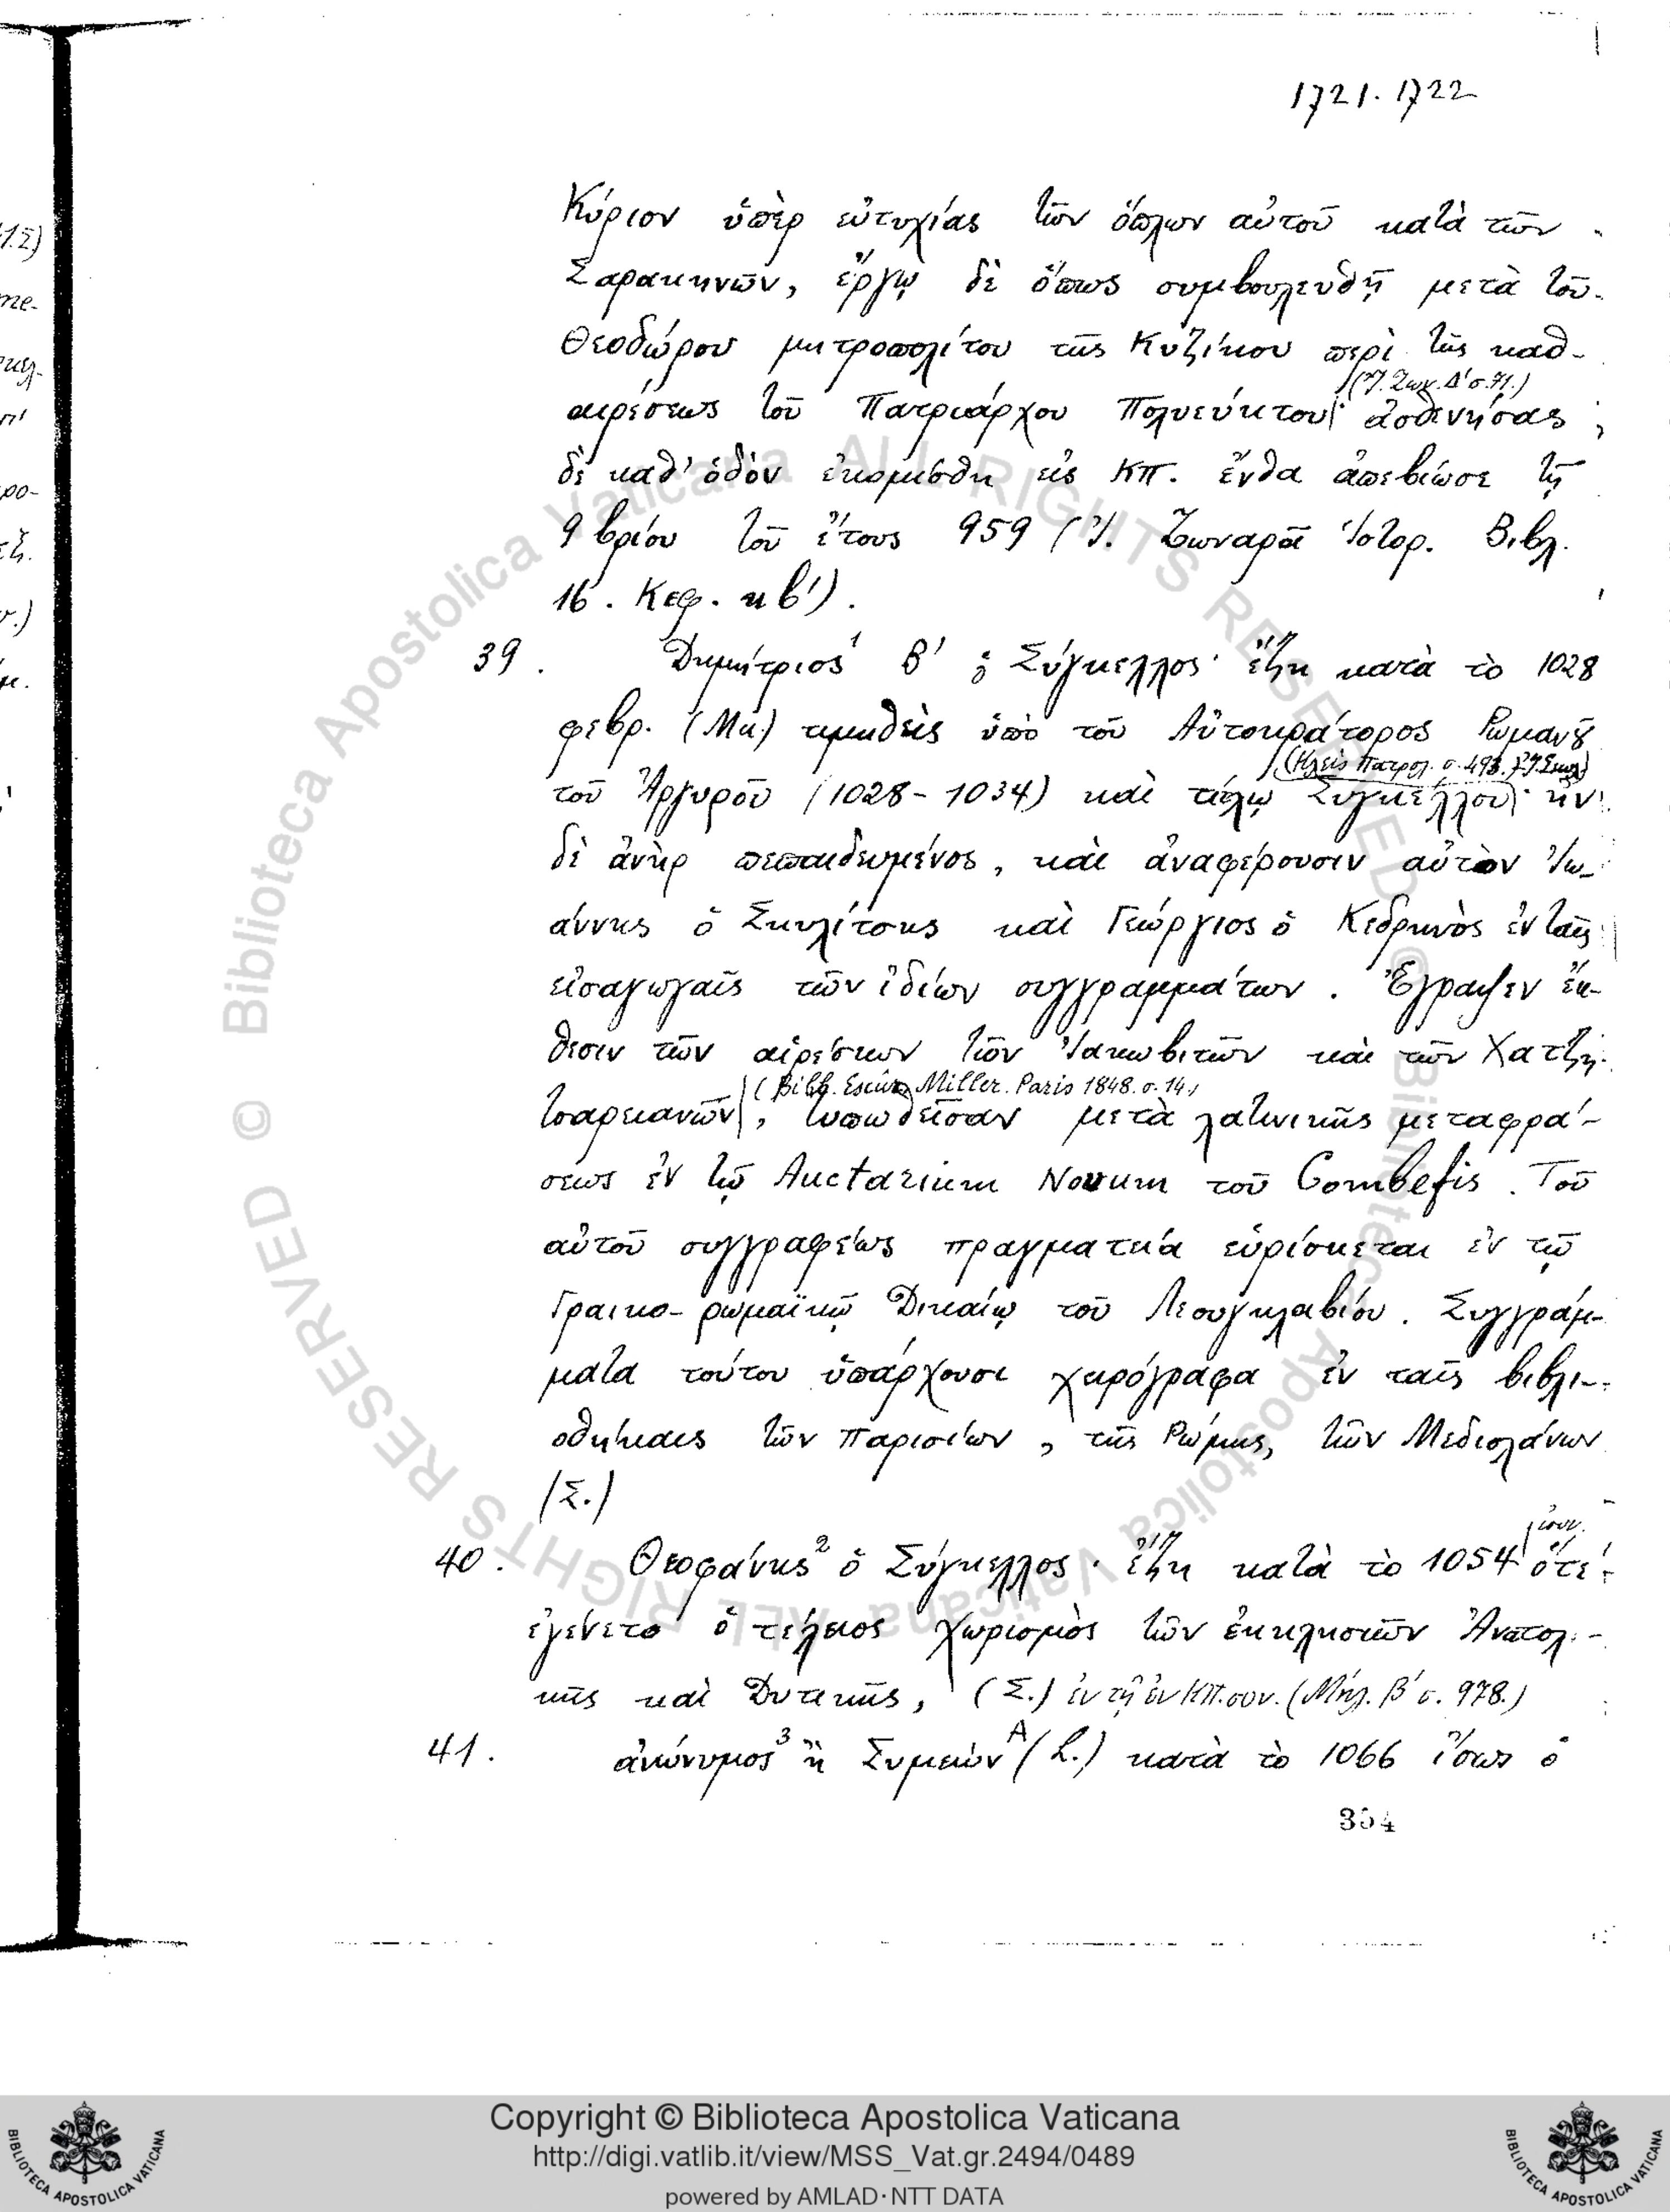 1721. 1722
Κύριον ὑπὲρ εὐτυχίας τῶν ὅπλων αὐτοῦ κατὰ τῶν
Σαρακηνῶν, ἔργῳ δὲ ὅπως συμβουλευθῇ μετὰ τοῦ
Θεοδώρου μητροπολίτου τῆς Κυζίκου περὶ τῆς καθ-
αιρέσεως τοῦ Πατριάρχου Πολυεύκτου· ἀσθενήσας
δὲ καθ' ὁδὸν ἐκομίσθη εἰς ΚΠ. ἔνθα ἀπεβίωσε τῇ
9βρίου τοῦ ἔτους 959 (Ἰ. Ζωναρᾶ Ἱστορ. Βιβλ.
16. Κεφ. κβ').
39. Δημήτριος¹ Β' ὁ Σύγκελλος· ἔζη κατὰ τὸ 1028
φεβρ. (Μα.) τιμηθεὶς ὑπὸ τοῦ Αὐτοκράτορος Ρωμανοῦ
(Κλεὶς Πατρολ. σ. 493.
τοῦ Ἀργυροῦ (1028-1034) καὶ τίτλῳ Συγκέλλου· ἦν
δὲ ἀνὴρ πεπαιδευμένος, καὶ ἀναφέρουσιν αὐτὸν Ἰω-
άννης ὁ Σκυλίτσης καὶ Γεώργιος ὁ Κεδρηνὸς ἐν ταῖς
εἰσαγωγαῖς τῶν ἰδίων συγγραμμάτων. Ἔγραψεν ἔκ-
θεσιν τῶν αἱρέσεων τῶν Ἰακωβιτῶν καὶ τῶν Χατζη-
(Bibl. Escur. Miller. Paris 1848. σ. 14.)
τσαρκιανῶν, τυπωθεῖσαν μετὰ λατινικῆς μεταφρά-
σεως ἐν τῷ Auctarium Novum τοῦ Combefis. Τοῦ
αὐτοῦ συγγραφέως πραγματεία εὑρίσκεται ἐν τῷ
Γραικο-ρωμαϊκῷ Δικαίῳ τοῦ Λεουγκλαβίου. Συγγράμ-
ματα τούτου ὑπάρχουσι χειρόγραφα ἐν ταῖς βιβλι-
οθήκαις τῶν Παρισίων, τῆς Ρώμης, τῶν Μεδιολάνων
(Σ.)
40. Θεοφάνης² ὁ Σύγκελλος· ἔζη κατὰ τὸ 1054 ὅτε
ἐγένετο ὁ τέλειος χωρισμὸς τῶν ἐκκλησιῶν Ἀνατολι-
κῆς καὶ Δυτικῆς, (Σ.) ἐν τῇ ἐν ΚΠ. συν. (Μήλ. Β' σ. 978.)
41. ἀνώνυμος³ ἢ Συμεὼν Α (L.) κατὰ τὸ 1066 ἴσως ὁ
354
© Biblioteca Apostolica Vaticana ALL RIGHTS RESERVED
Copyright © Biblioteca Apostolica Vaticana
http://digi.vatlib.it/view/MSS_Vat.gr.2494/0489
powered by AMLAD·NTT DATA
BIBLIOTECA APOSTOLICA VATICANA
BIBLIOTECA APOSTOLICA VATICANA